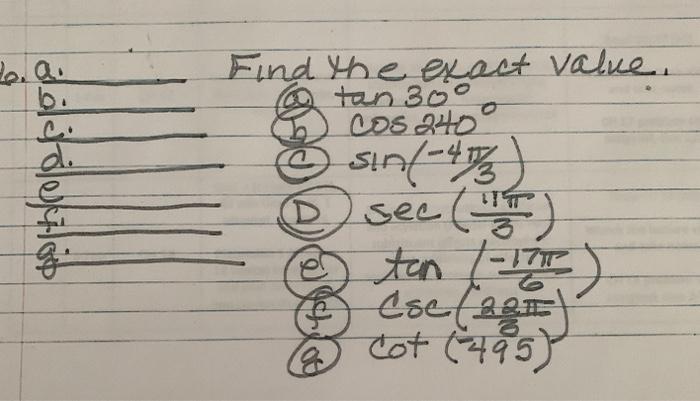 6. a. Find the exact value.
b. (a) tan 30°
c. (b) cos 240°
d. (c) sin(-4π/3)
e (D) sec (11π/3)
f. (e) tan (-17π/6)
g. (f) csc(22π/3)
(g) cot (-495)